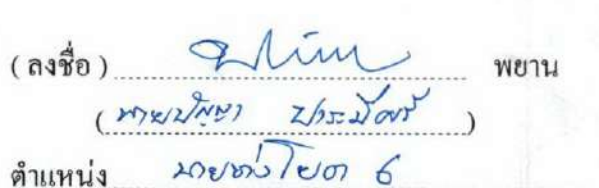 (ลงชื่อ) พยาน
(นายปัญญา )
ตำแหน่ง นายช่างโยธา 6